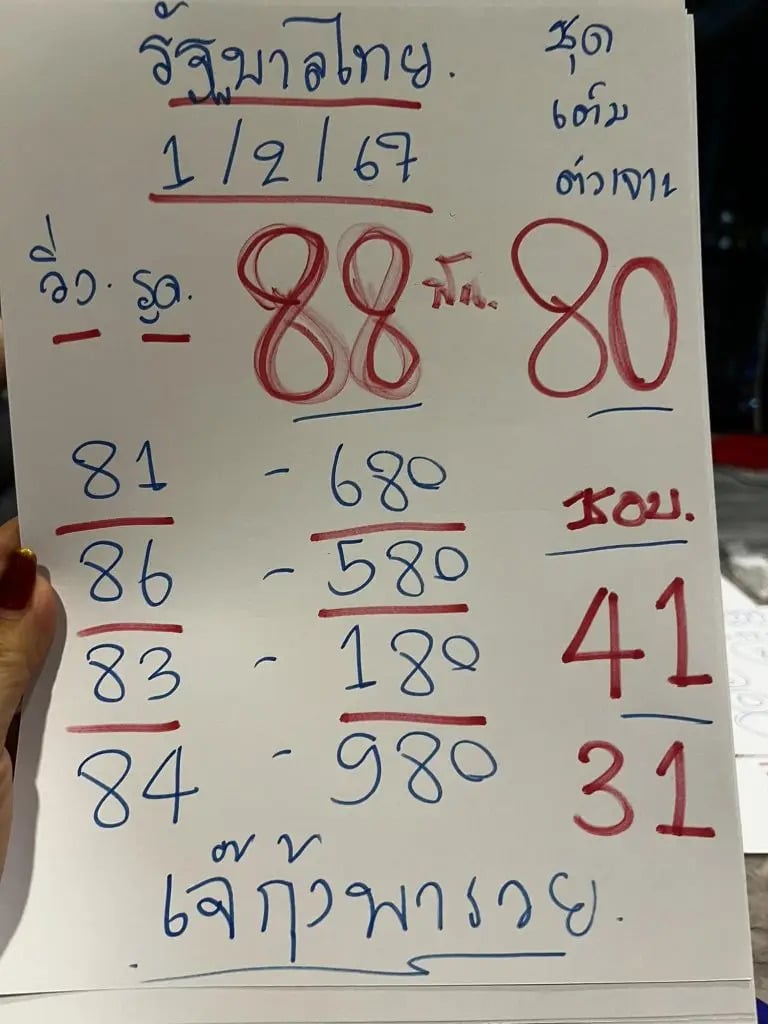 รัฐบาลไทย.
ชุด
เต็ม
ตัวเจาะ
1/2/67
วิ่ง. รูด. 88 ฟัน. 80
81 - 680
ชอบ.
86 - 580
41
83 - 180
31
84 - 980
เจ๊กุ้งพารวย.